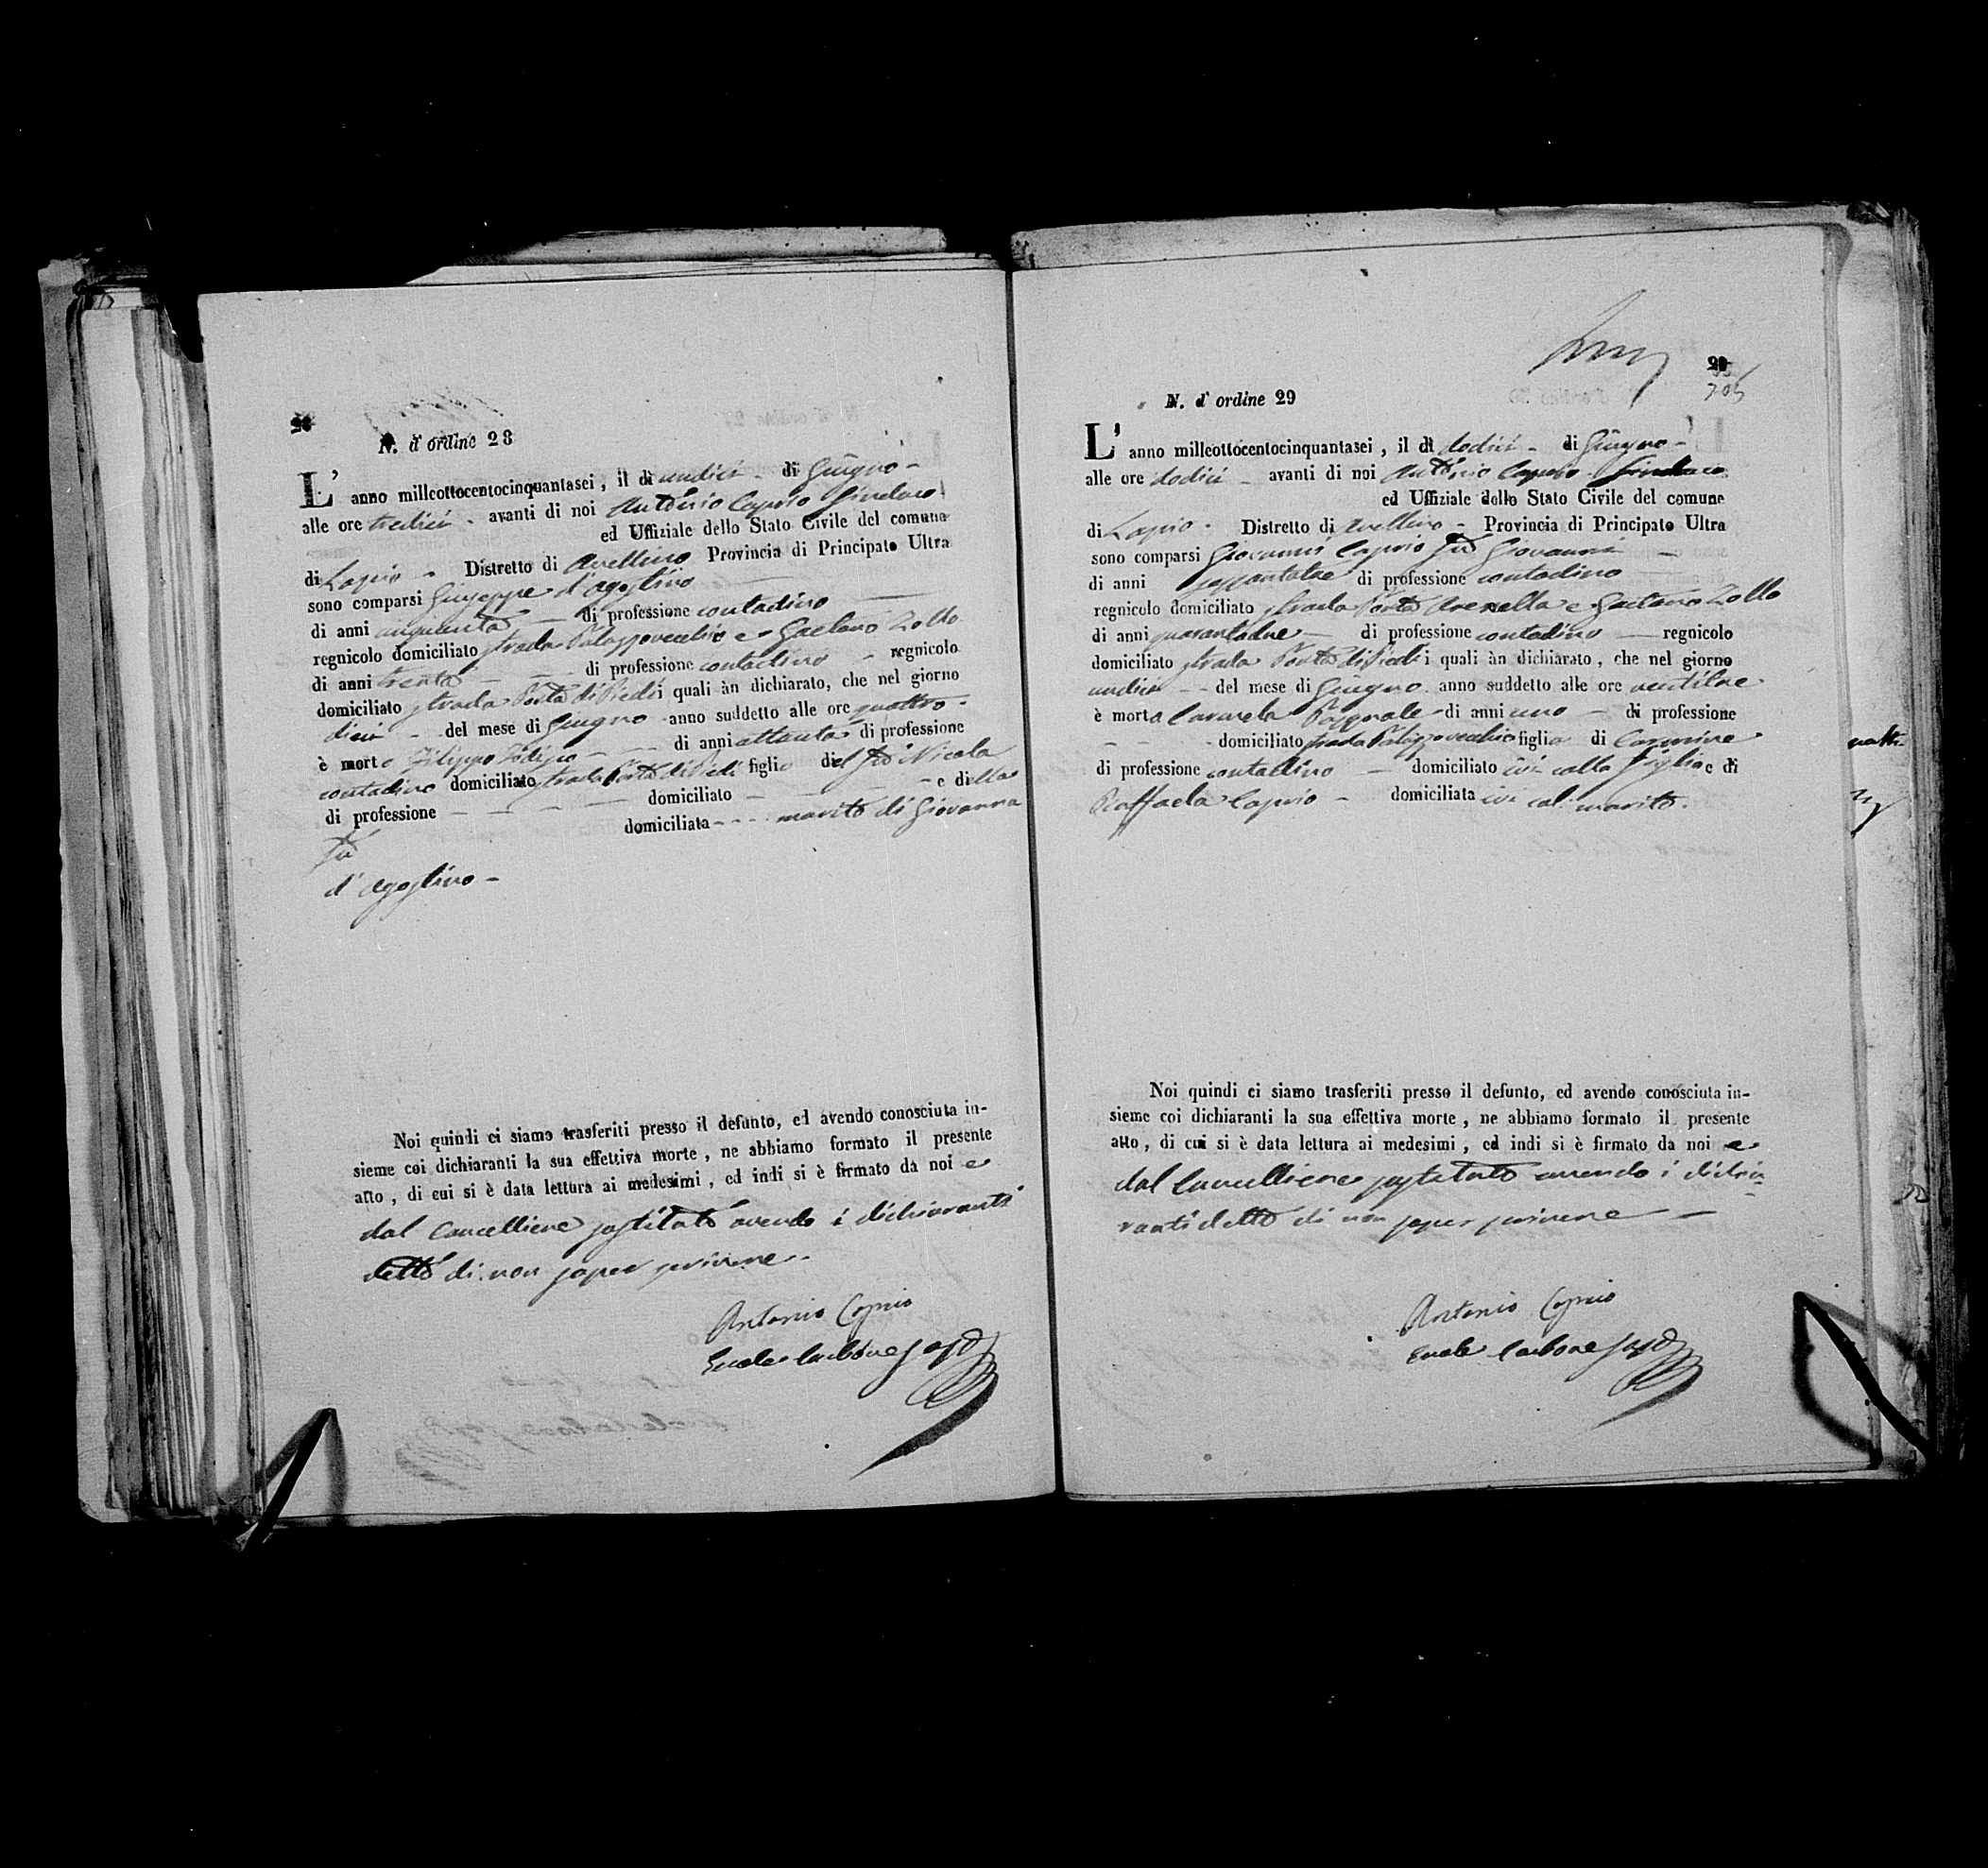 28
N. d' ordine 28
L' anno milleottocentocinquantasei, il dì undici - di Giugno -
alle ore tredici - avanti di noi Antonio Caprio Sindaco
ed Uffiziale dello Stato Civile del comune
di Lapio - Distretto di Avellino Provincia di Principato Ultra
sono comparsi Giuseppe d'Agostino
di anni cinquanta - di professione contadino
regnicolo domiciliato strada Palazzovecchio e Gaetano Zollo
di anni trenta - di professione contadino - regnicolo
domiciliato strada Porta di Piedi i quali àn dichiarato, che nel giorno
dieci - del mese di Giugno anno suddetto alle ore quattro -
è morto Filippo - di anni ottanta di professione
contadino domiciliato strada Porta di Piedi figlio del fù Nicola
di professione - - - domiciliato - - - e della
fù domiciliata - - - marito di Giovanna
d'Agostino -
Noi quindi ci siamo trasferiti presso il defunto, ed avendo conosciuta in-
sieme coi dichiaranti la sua effettiva morte, ne abbiamo formato il presente
atto, di cui si è data lettura ai medesimi, ed indi si è firmato da noi e
dal Cancelliere sostituto avendo i dichiaranti
detto di non saper scrivere -
Antonio Caprio
Carbone sost
29
N. d' ordine 29
L' anno milleottocentocinquantasei, il dì dodici - di Giugno -
alle ore dodici - avanti di noi Antonio Caprio Sindaco
ed Uffiziale dello Stato Civile del comune
di Lapio - Distretto di Avellino - Provincia di Principato Ultra
sono comparsi Giovanni Caprio fù Giovanni -
di anni sessantatre di professione contadino
regnicolo domiciliato strada Porta Arenella e Gaetano Zollo
di anni quarantadue - di professione contadino - regnicolo
domiciliato strada Porta di Piedi i quali àn dichiarato, che nel giorno
undici - - del mese di Giugno anno suddetto alle ore ventitre
è morta Carmela Pasquale di anni uno - di professione
- - - domiciliato strada Palazzovecchio figlia di Carmine
di professione contadino - domiciliato ivi colla figlia e di
Raffaela Caprio - domiciliata ivi col marito.
Noi quindi ci siamo trasferiti presso il defunto, ed avendo conosciuta in-
sieme coi dichiaranti la sua effettiva morte, ne abbiamo formato il presente
atto, di cui si è data lettura ai medesimi, ed indi si è firmato da noi e
dal Cancelliere sostituto avendo i dichia-
ranti detto di non saper scrivere -
Antonio Caprio
Carbone sost